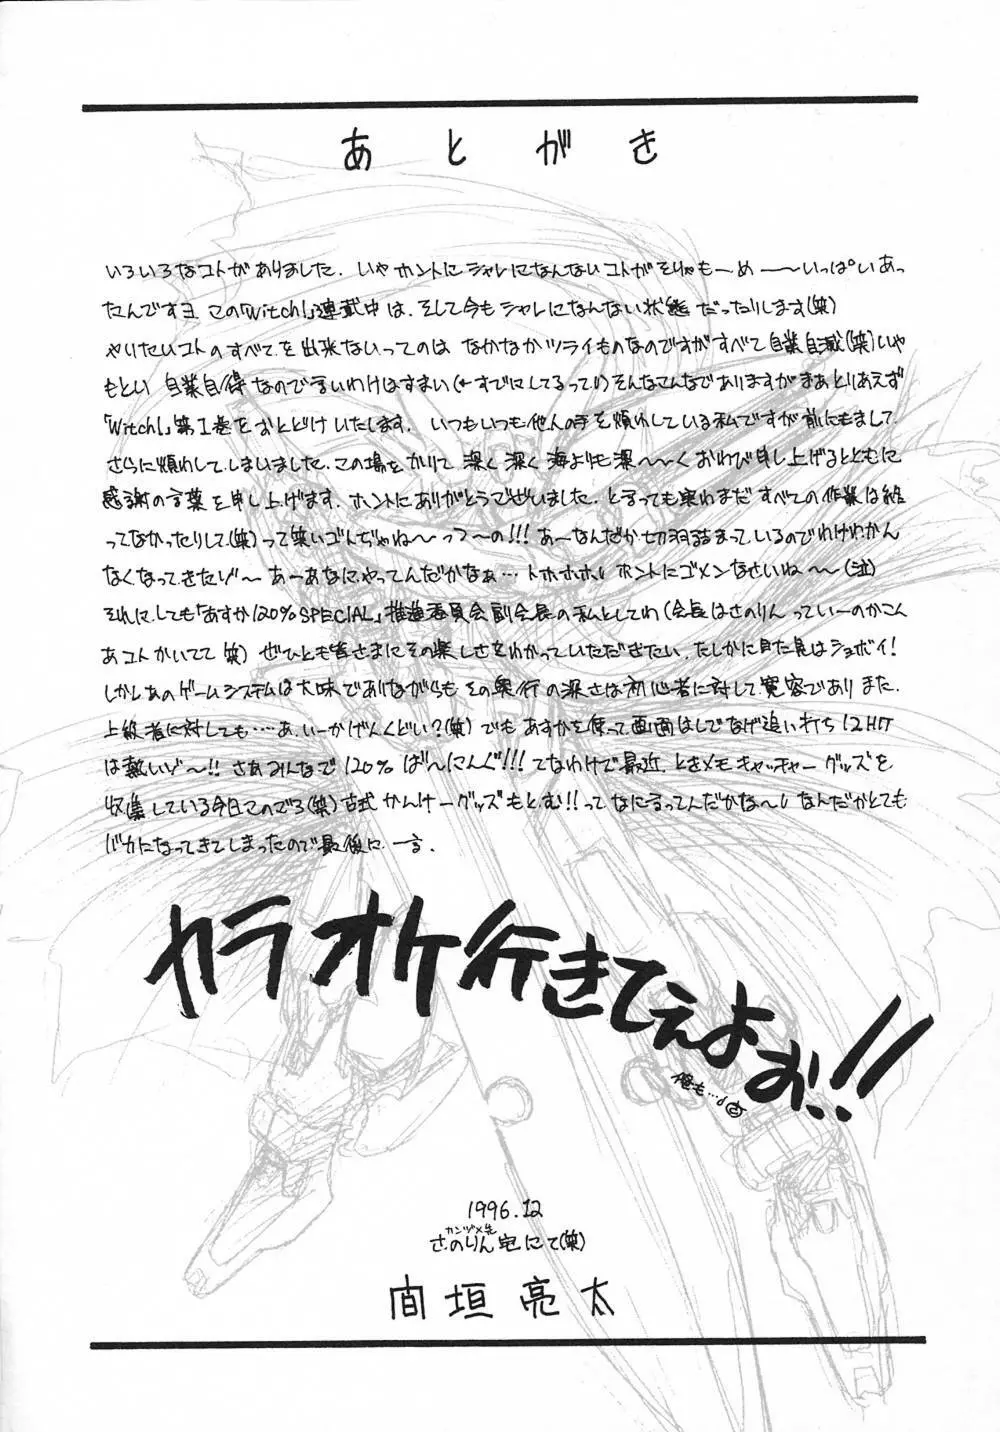 あとがき
いろいろなコトがありました. いやホントにシャレになんないコトがそりゃもーめーーいっぱいあっ
たんですヨ この「Witch!」連載中は、そして今もシャレになんない状態だったりします(笑)
やりたいコトのすべてを出来ないってのは なかなかツライものなのですがすべて自業自滅(笑)いや
もとい 自業自得なので言いわけはすまい(←すでにしてるって!)そんなこんなでありますがまあとりあえず
「Witch!」第1巻をおとどけいたします. いつもいつも他人の手を煩わしている私ですが前にもまして
さらに煩わしてしまいました. この場をかりて深く深く海よりも深〜〜くおわび申し上げるとともに
感謝の言葉を申し上げます. ホントにありがとうございました. と言っても実わまだすべての作業は終
ってなかったりして(笑)って笑いゴトぢゃね〜って〜の!!! あーなんだか切羽詰まっているのでわけわかん
なくなってきたゾ〜 あーあなにやってんだかなぁ…トホホホ ホントにゴメンなさいね〜〜(泣)
それにしても「あすか120%SPECIAL」推進委員会副会長の私としてわ(会長はさのりんっていーのかこん
なコトかいてて 笑) ぜひとも皆さまにその楽しさをわかっていただきたい. たしかに見た目はショボイ!
しかしあのゲームシステムは大味でありながらもその奥行の深さは初心者に対して寛容でありまた.
上級者に対しても……あ、いーかげんくどい?(笑)でもあすかを使って画面はしでなげ追い打ち12HIT
は熱いゾ〜!! さあみんなで120%ば〜にんぐ!!! てなわけで最近、ときメモキャッチャーグッズを
収集している今日このごろ(笑)古式かんけーグッズもとむ!!ってなにゆってんだかな〜 なんだかとても
バカになってきてしまったので最後に一言.
カラオケ行きてえよお..!!
俺も…
1996.12
カンヅメ先
さのりん宅にて(笑)
間垣亮太